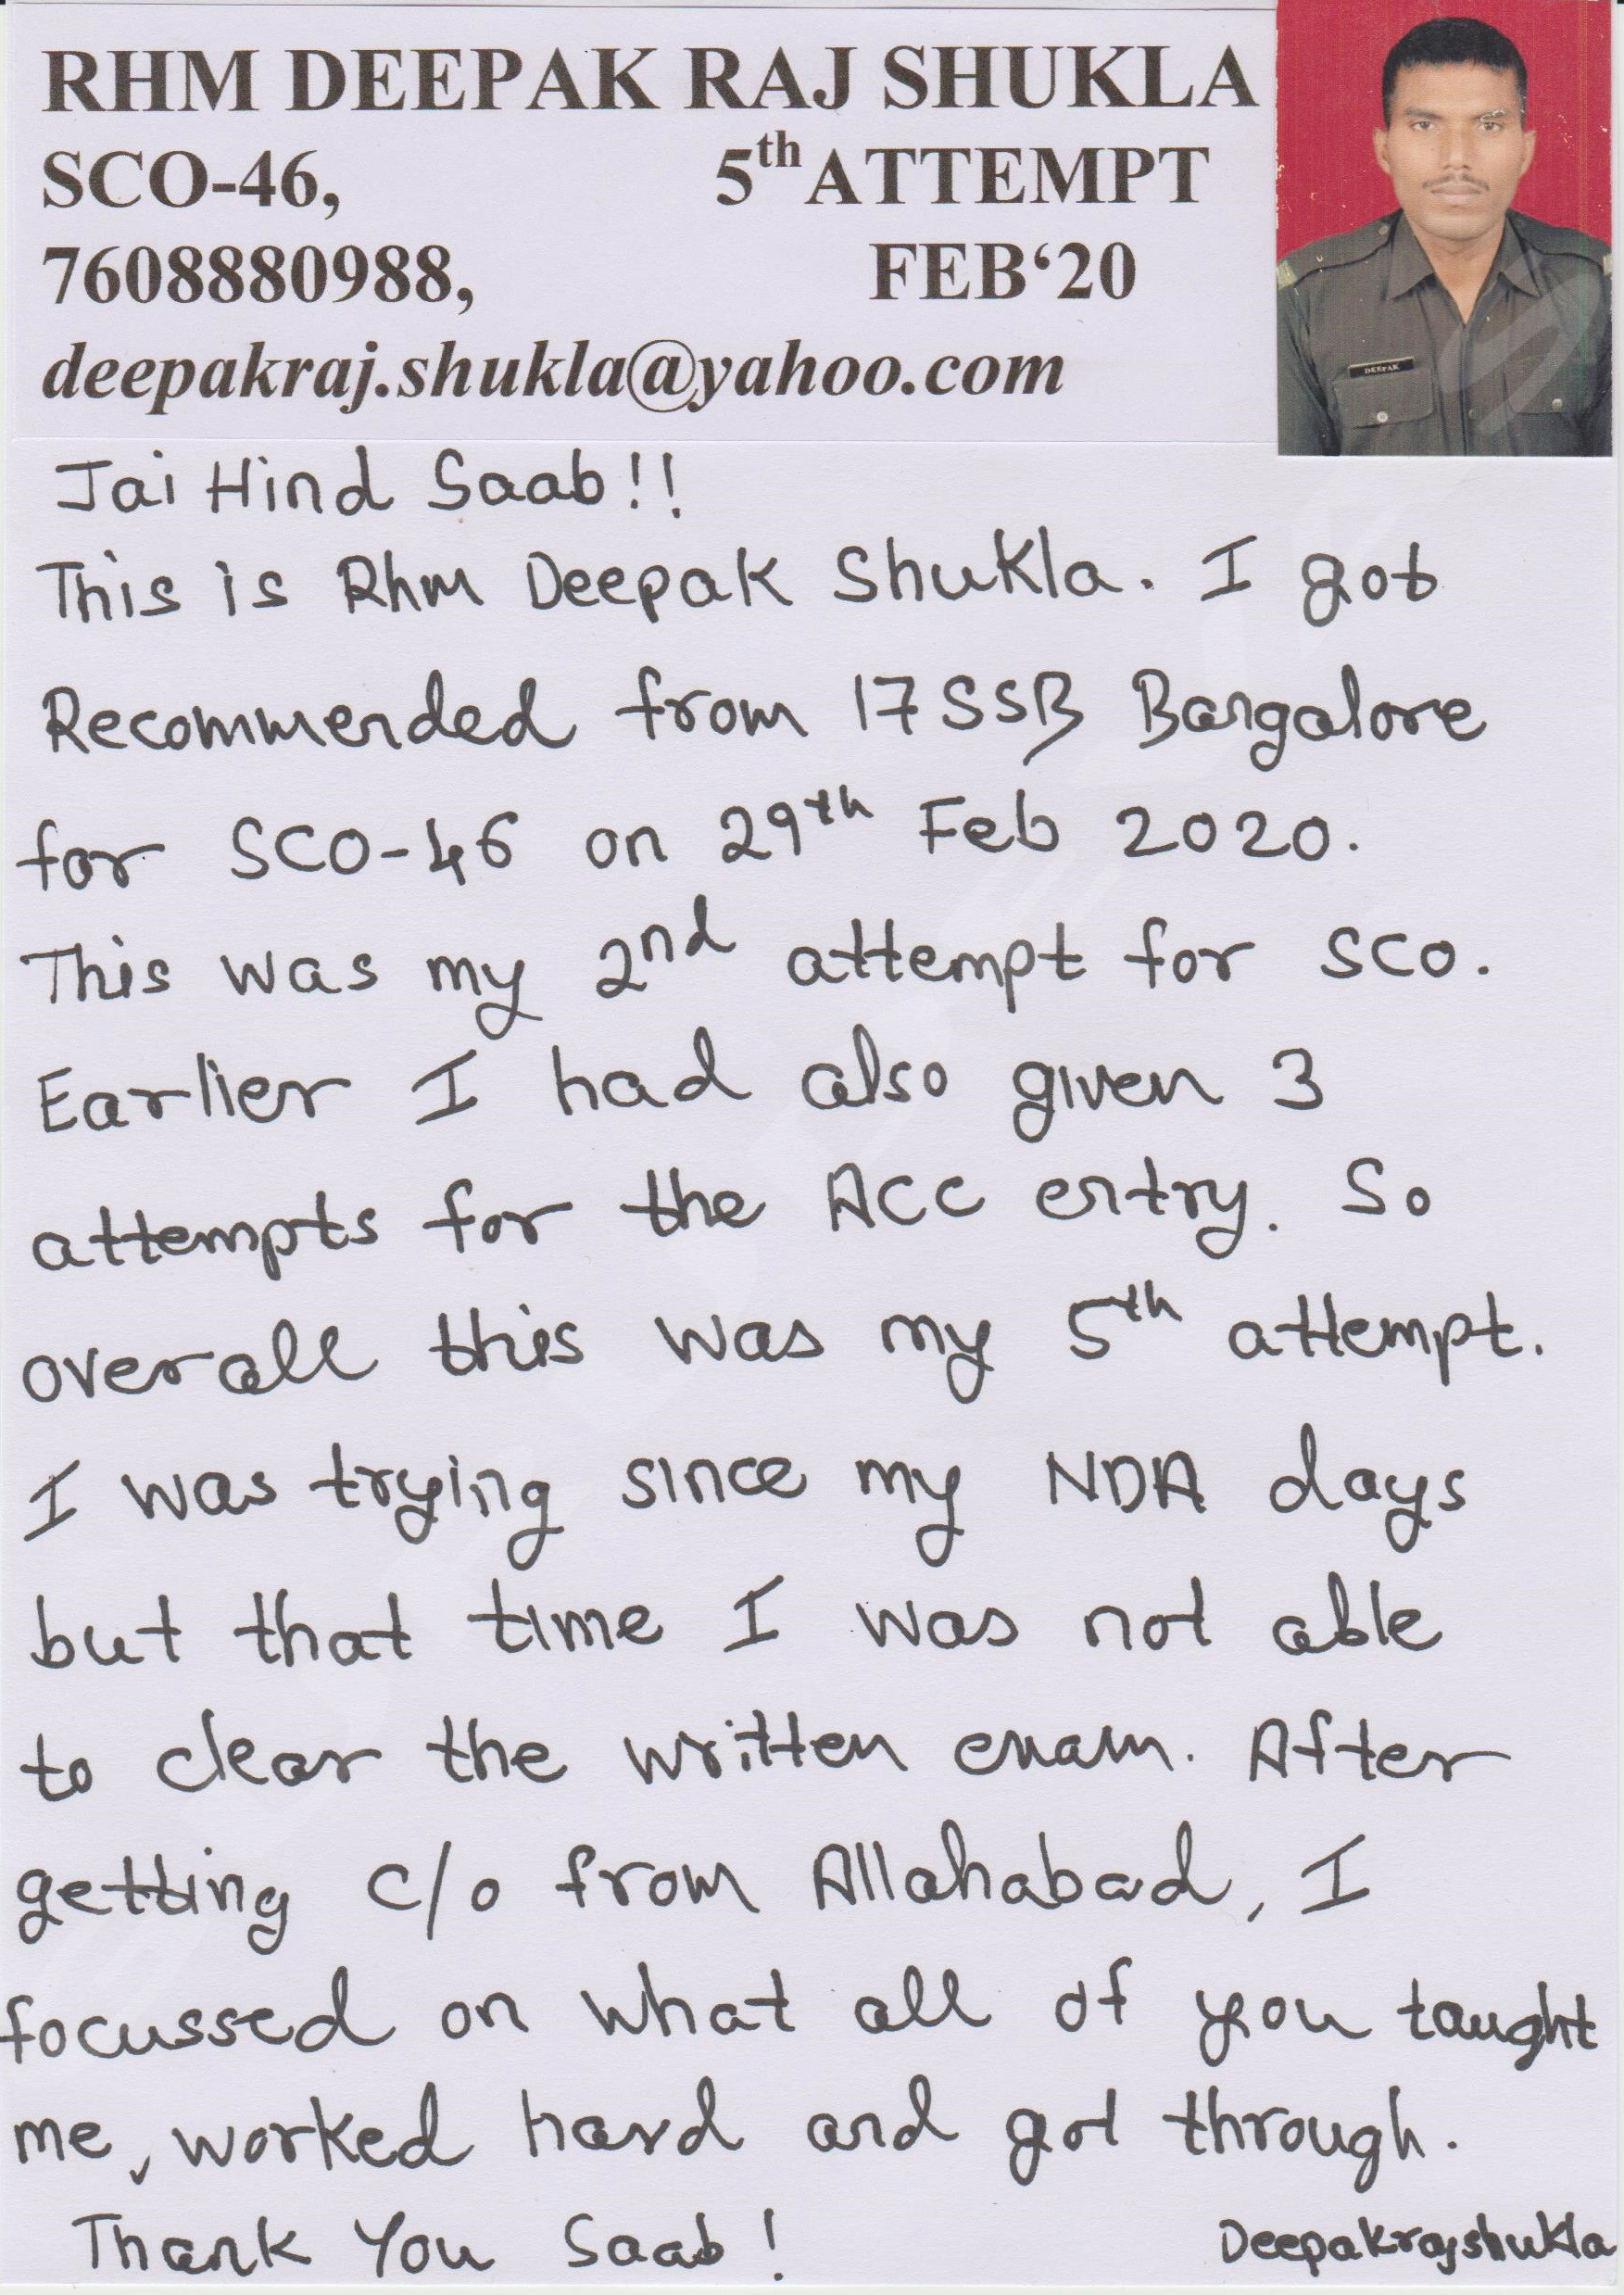 RHM DEEPAK RAJ SHUKLA
SCO-46, 5th ATTEMPT
7608880988, FEB‘20
deepakraj.shukla@yahoo.com
DEEPAK
Jai Hind Saab!!
This is Rhm Deepak Shukla. I got
Recommended from 17 SSB Bangalore
for SCO-46 on 29th Feb 2020.
This was my 2nd attempt for SCO.
Earlier I had also given 3
attempts for the ACC entry. So
overall this was my 5th attempt.
I was trying since my NDA days
but that time I was not able
to clear the written exam. After
getting c/o from Allahabad, I
focussed on what all of you taught
me, worked hard and got through.
Thank You Saab! Deepakrajshukla